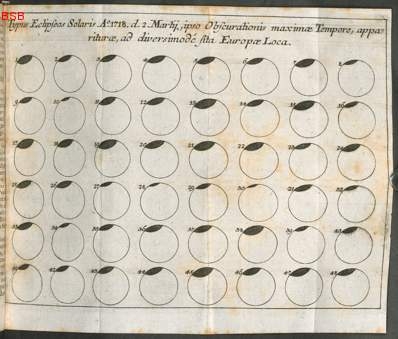 BSB
Typus Eclipseos Solaris Aº. 1718. d. 2. Martij, ipso Obscurationis maximæ Tempore, appa-
rituræ, ad diversimodè sita Europæ Loca.
1 2 3 4 5 6 7 8
9 10 11 12 13 14 15 16
17 18 19 20 21 22 23 24
25 26 27 28 29 30 31 32
33 34 35 36 37 38 39 40
41 42 43 44 45 46 47 48